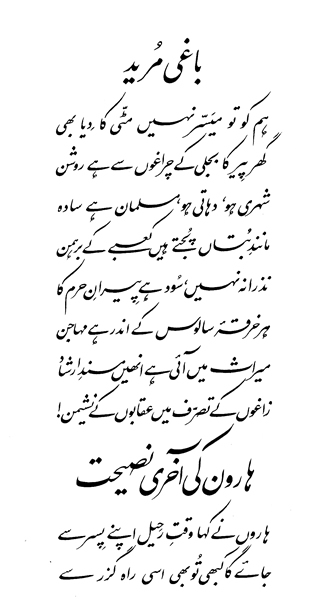 باغی مُرید
ہم کو تو میَسّر نہیں مٹّی کا دِیا بھی
گھر پِیر کا بجلی کے چراغوں سے ہے روشن
شہری ہو، دہاتی ہو، مسلمان ہے سادہ
مانندِ بُتاں پُجتے ہیں کعبے کے برہمن
نذرانہ نہیں، سُود ہے پیرانِ حرم کا
ہر خرقۂ سالوس کے اندر ہے مہاجن
میراث میں آئی ہے انھیں مسندِ ارشاد
زاغوں کے تصرّف میں عقابوں کے نشیمن!
ہارون کی آخری نصیحت
ہاروں نے کہا وقتِ رحیل اپنے پِسر سے
جائے گا کبھی تُو بھی اسی راہ گزر سے